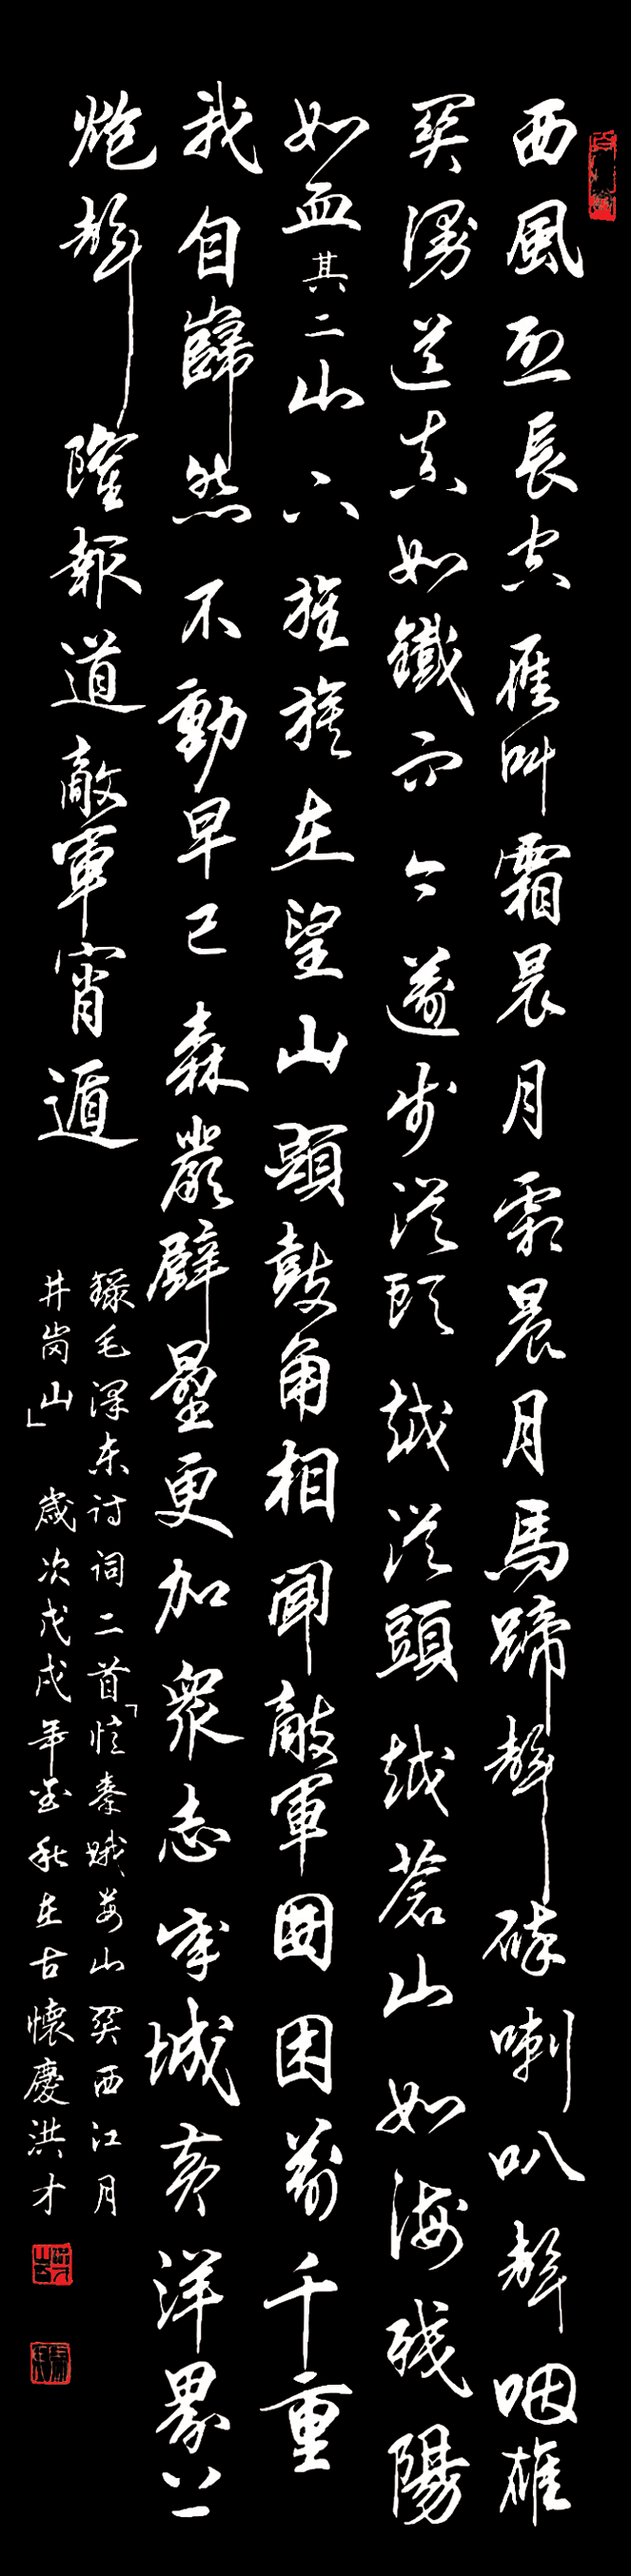 西風烈長空雁叫霜晨月霜晨月馬蹄聲碎喇叭聲咽雄
關漫道真如鐵而今邁步從頭越從頭越蒼山如海殘陽
如血其二山下旌旗在望山頭鼓角相聞敵軍圍困萬千重
我自巋然不動早已森嚴壁壘更加衆志成城黃洋界上
炮聲隆報道敵軍宵遁
錄毛澤东诗詞二首「憶秦娥娄山關西江月
井崗山」歲次戊戌年金秋在古懷慶洪才